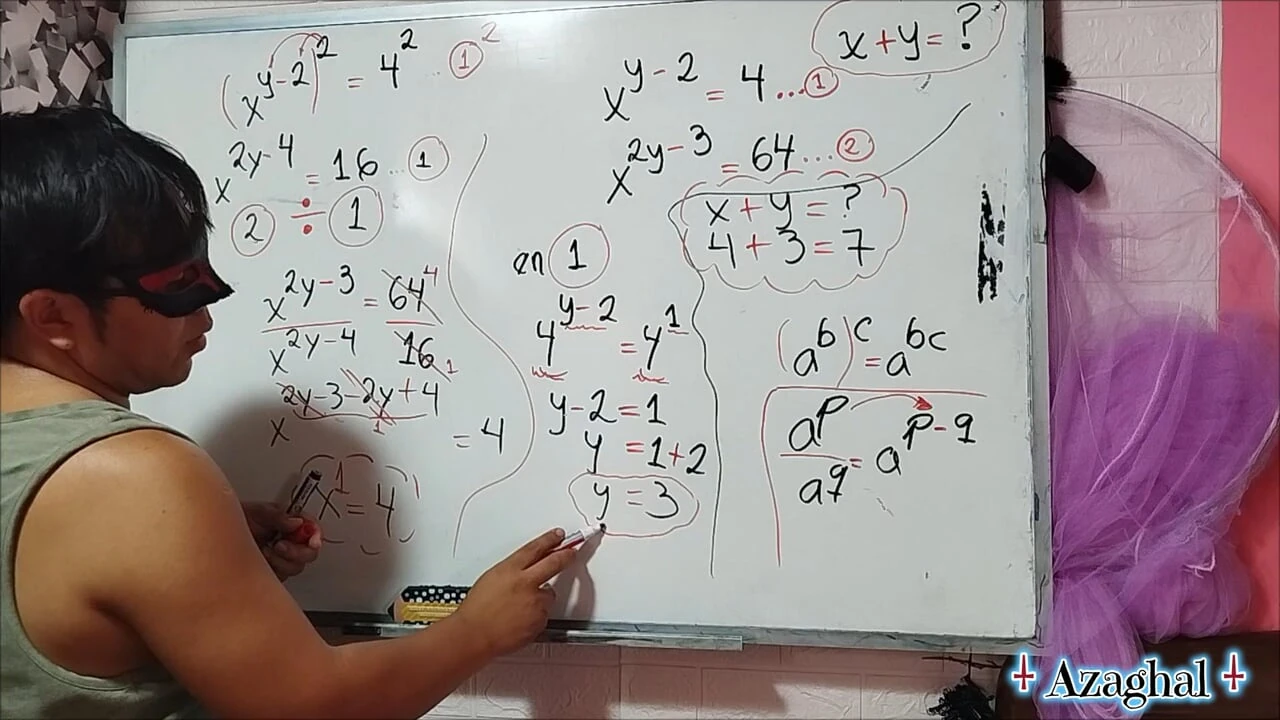 (x^(y-2))^2 = 4^2 .. ①^2
x^(2y-4) = 16 ... ①
② ÷ ①
x^(2y-3) / x^(2y-4) = 64 4 / 16 1
x^(2y-3-2y+4) = 4
1
x^1 = 4
x^(y-2) = 4 ... ①
x^(2y-3) = 64 ... ②
en ①
4^(y-2) = 4^1
y-2 = 1
y = 1+2
y = 3
x+y = ?
x+y = ?
4+3 = 7
(a^b)^c = a^(bc)
a^p / a^q = a^(p-q)
Azaghal